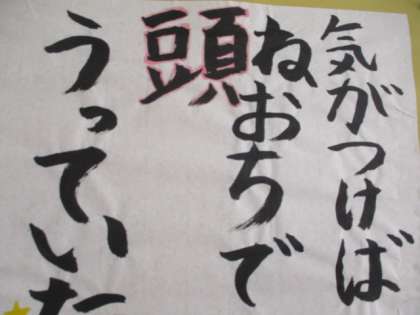 気がつけば
ねおちで
頭
うっていた